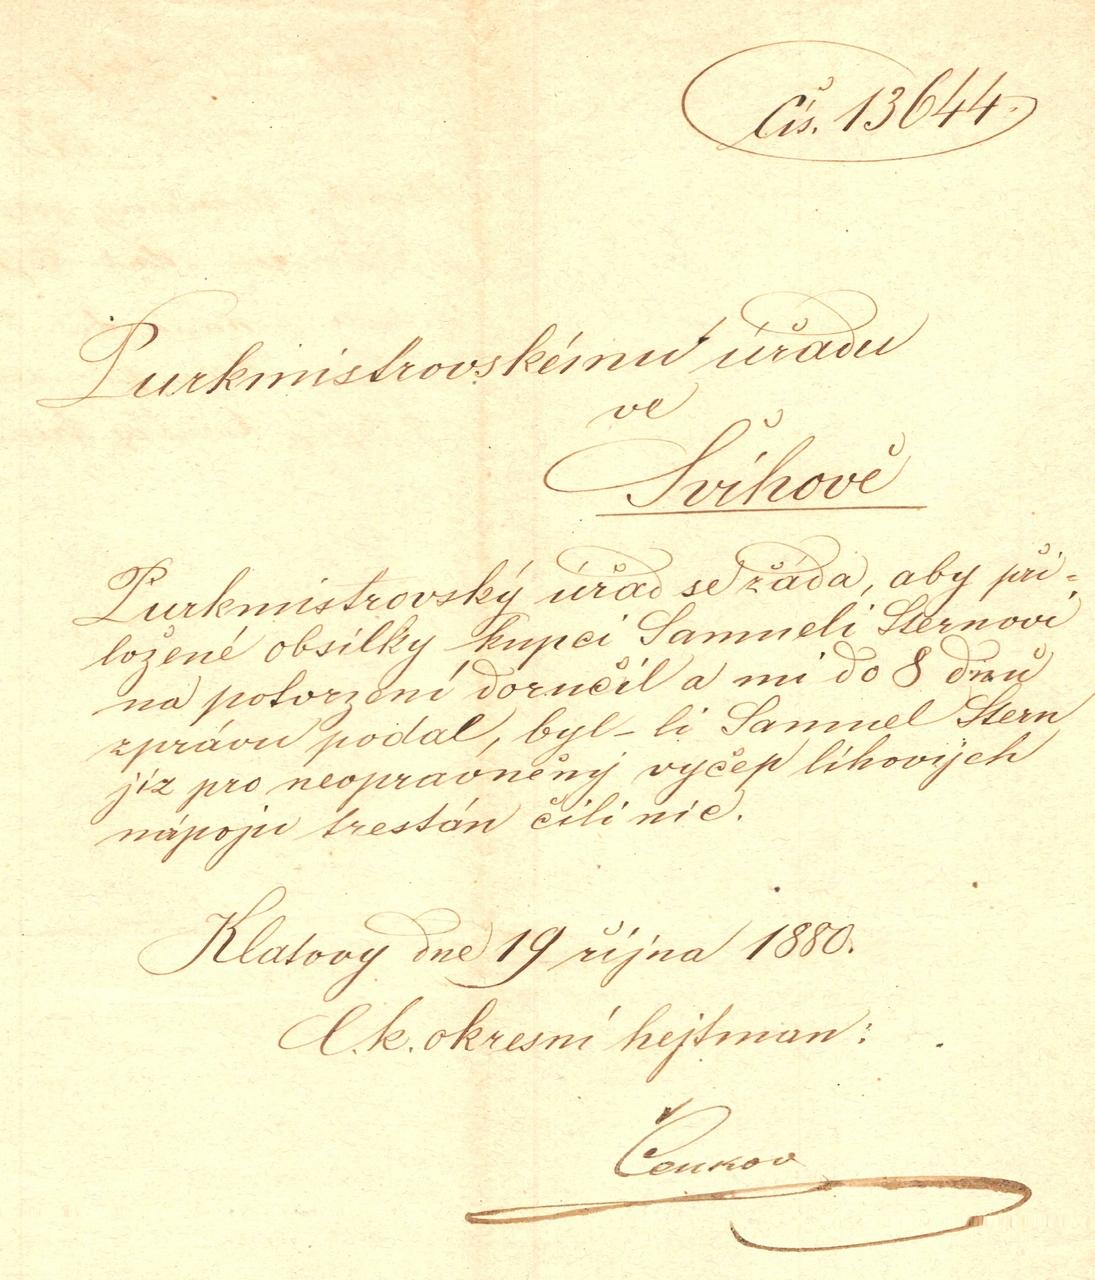 Čís. 13644.
Purkmistrovskému úřadu
ve
Švihově
Purkmistrovský úřad se žáda, aby při-
ložené obsilky kupci Samueli Sternovi
na potvrzení doručil a mi do 8 dnů
zprávu podal, byl-li Samuel Stern
již pro neoprávněný výčep lihových
nápojů trestán čili nic.
Klatovy dne 19 října 1880.
C. k. okresní hejtman: